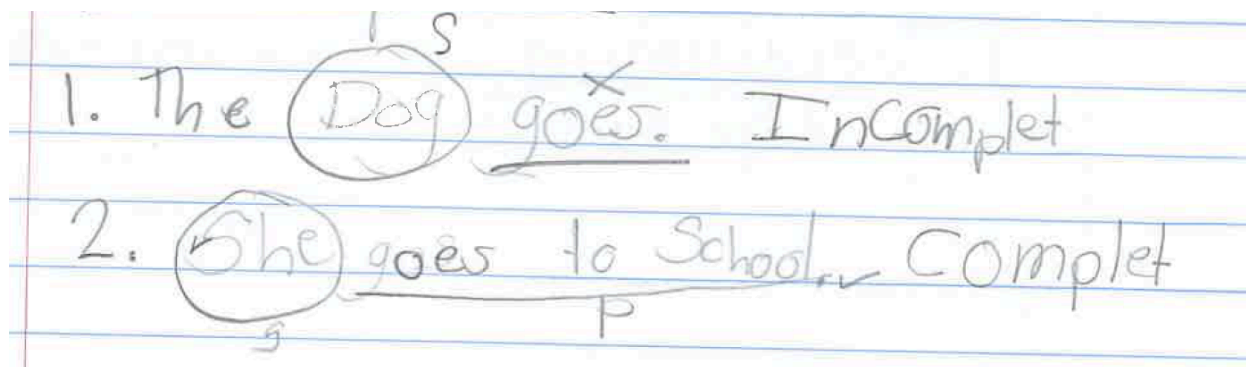 S
1. The Dog goes. Incomplet
2. She goes to School. Complet
s P